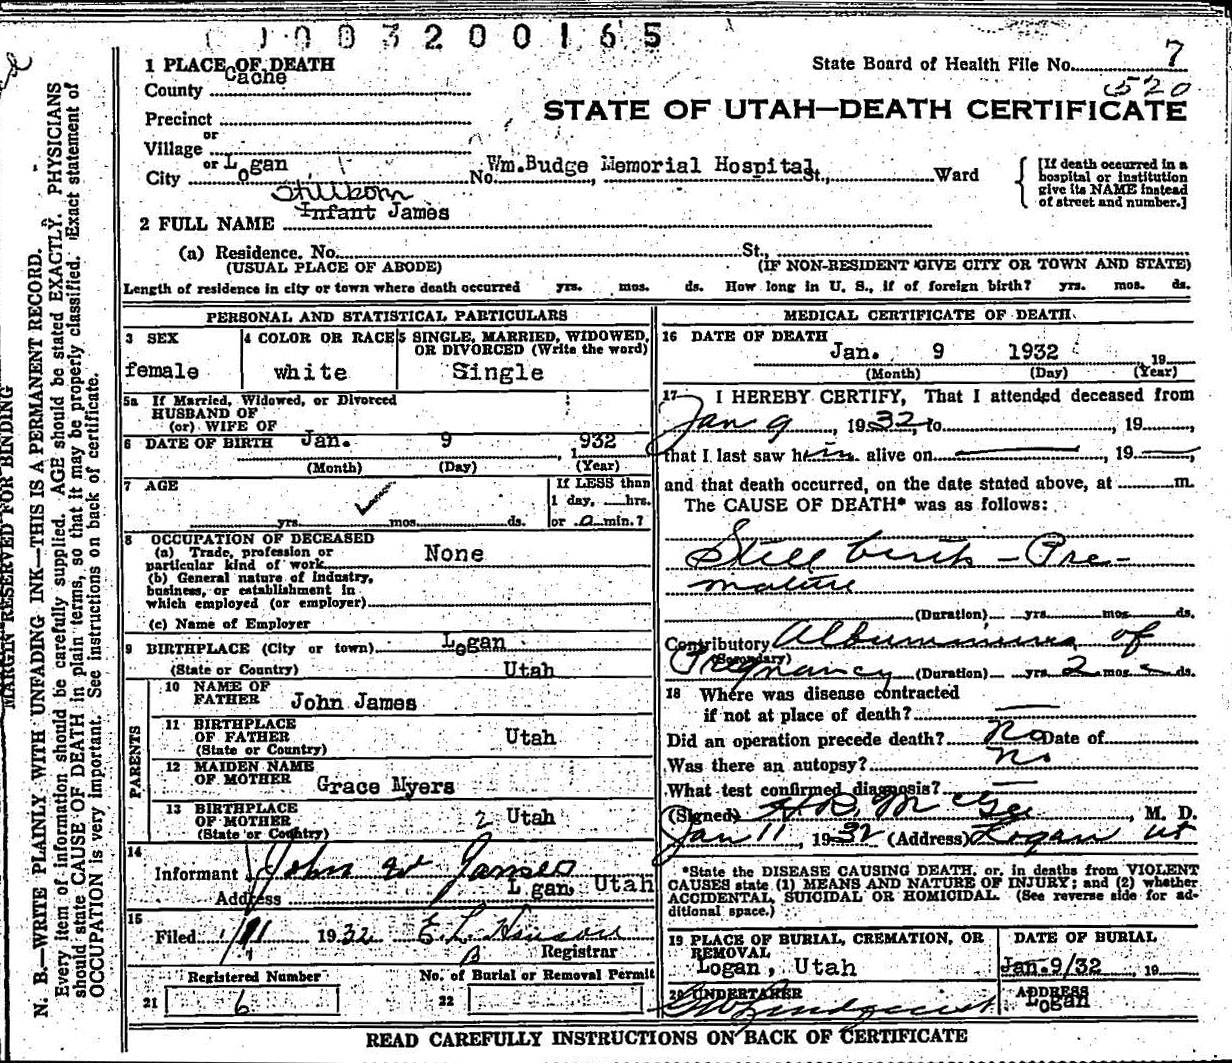 003200165
1 PLACE OF DEATH
State Board of Health File No. 7
520
County Cache
STATE OF UTAH—DEATH CERTIFICATE
Precinct
or
Village
or
City Logan No. Wm.Budge Memorial Hospital St., Ward
[If death occurred in a hospital or institution give its NAME instead of street and number.]
Stillborn
2 FULL NAME Infant James
(a) Residence. No. St.,
(USUAL PLACE OF ABODE) (IF NON-RESIDENT GIVE CITY OR TOWN AND STATE)
Length of residence in city or town where death occurred yrs. mos. ds. How long in U. S., if of foreign birth? yrs. mos. ds.
PERSONAL AND STATISTICAL PARTICULARS
3 SEX 4 COLOR OR RACE 5 SINGLE, MARRIED, WIDOWED,
OR DIVORCED (Write the word)
female white Single
5a If Married, Widowed, or Divorced
HUSBAND OF
(or) WIFE OF
6 DATE OF BIRTH Jan. 9, 1932
(Month) (Day) (Year)
7 AGE If LESS than
1 day, hrs.
yrs. mos. ds. or 0 min.?
8 OCCUPATION OF DECEASED
(a) Trade, profession or
particular kind of work None
(b) General nature of Industry,
business, or establishment in
which employed (or employer)
(c) Name of Employer
9 BIRTHPLACE (City or town) Logan
(State or Country) Utah
PARENTS
10 NAME OF
FATHER John James
11 BIRTHPLACE
OF FATHER Utah
(State or Country)
12 MAIDEN NAME
OF MOTHER Grace Myers
13 BIRTHPLACE
OF MOTHER 2 Utah
(State or Country)
14
Informant John W James
Address L gan, Utah
15
Filed 1/11 1932 E. L. Hanson
Registrar
Registered Number No. of Burial or Removal Permit
21 6 22
MEDICAL CERTIFICATE OF DEATH
16 DATE OF DEATH
Jan. 9 1932, 19
(Month) (Day) (Year)
17 I HEREBY CERTIFY, That I attended deceased from
Jan 9, 1932, to, 19,
that I last saw him alive on, 19,
and that death occurred, on the date stated above, at m.
The CAUSE OF DEATH* was as follows:
Still birth - Pre-
mature
(Duration) yrs. mos. ds.
Contributory Albuminura of
(Secondary)
Pregnancy (Duration) yrs. 2 mos. ds.
18 Where was disease contracted
if not at place of death?
Did an operation precede death? No Date of
Was there an autopsy? No
What test confirmed diagnosis?
(Signed) H.R. McGee, M. D.
Jan 11, 1932 (Address) Logan Ut
*State the DISEASE CAUSING DEATH, or, in deaths from VIOLENT
CAUSES state (1) MEANS AND NATURE OF INJURY; and (2) whether
ACCIDENTAL, SUICIDAL OR HOMICIDAL. (See reverse side for ad-
ditional space.)
19 PLACE OF BURIAL, CREMATION, OR
REMOVAL
Logan, Utah
DATE OF BURIAL
Jan.9/32, 19
20 UNDERTAKER
ADDRESS
Logan
READ CAREFULLY INSTRUCTIONS ON BACK OF CERTIFICATE
MARGIN RESERVED FOR BINDING
N. B.—WRITE PLAINLY WITH UNFADING INK—THIS IS A PERMANENT RECORD.
Every item of information should be carefully supplied. AGE should be stated EXACTLY. PHYSICIANS
should state CAUSE OF DEATH in plain terms, so that it may be properly classified. Exact statement of
OCCUPATION is very important. See instructions on back of certificate.